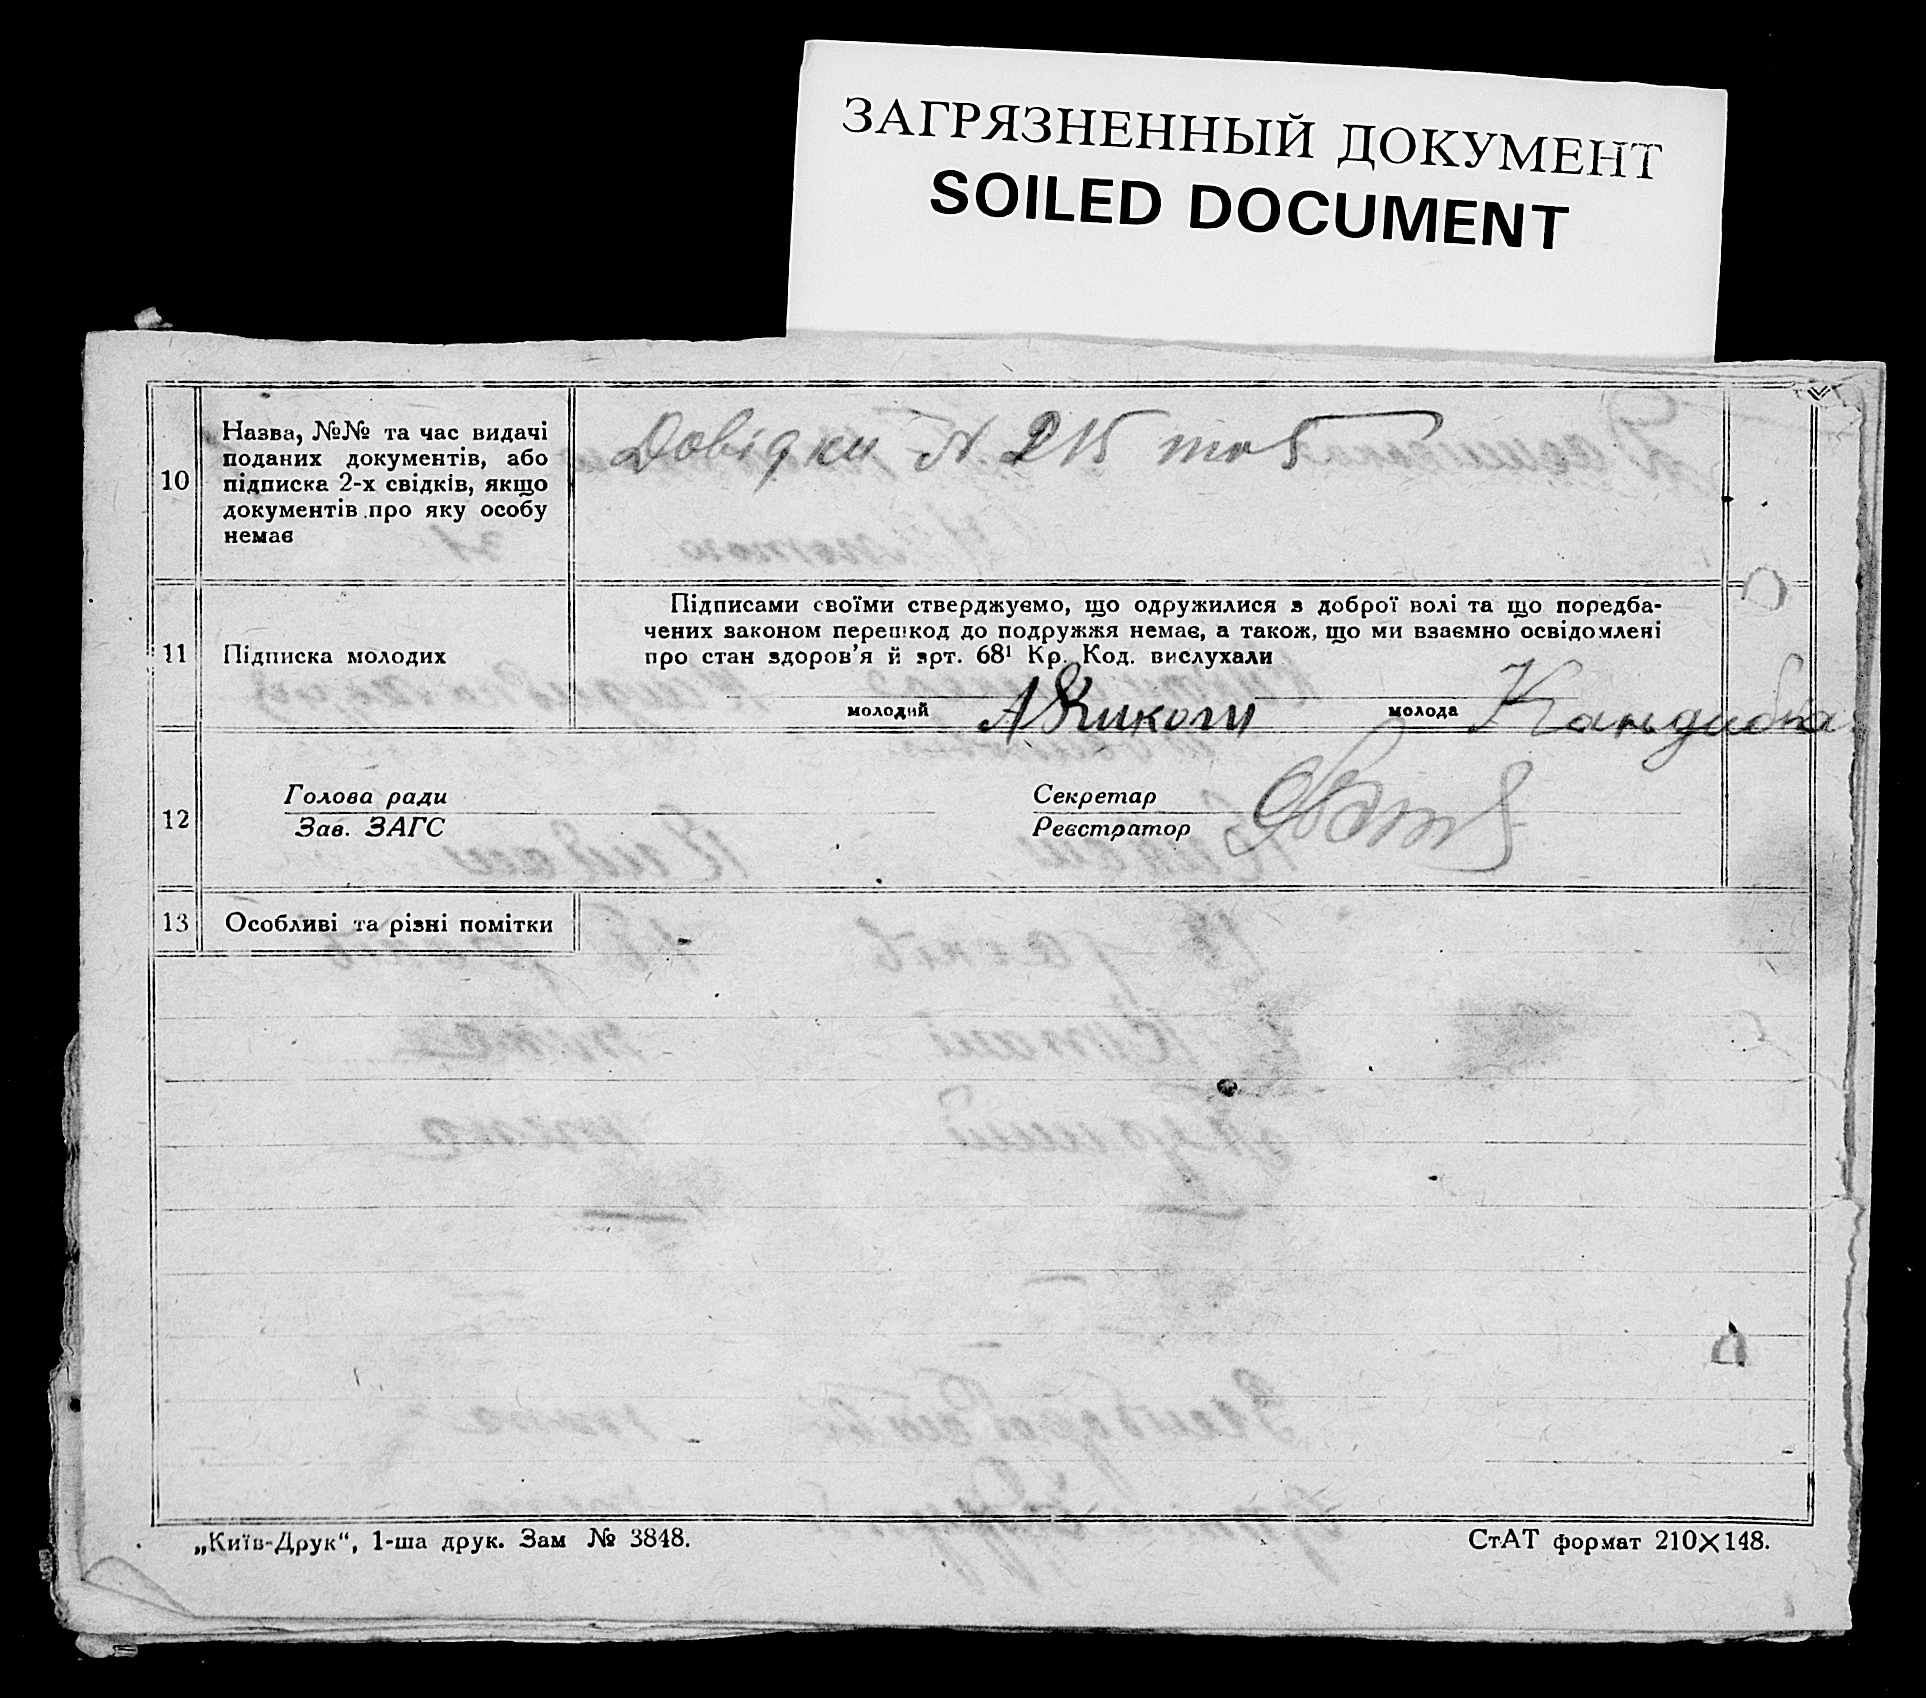 ЗАГРЯЗНЕННЫЙ ДОКУМЕНТ
SOILED DOCUMENT
10
Назва, №№ та час видачі
поданих документів, або
підписка 2-х свідків, якщо
документів про яку особу
немає
Довідки N 215 та 5
11
Підписка молодих
Підписами своїми стверджуємо, що одружилися з доброї волі та що поредба-
чених законом перешкод до подружжя немає, а також, що ми взаємно освідомлені
про стан здоров'я й арт. 68¹ Кр. Код. вислухали
молодий
молода Кандиба
12
Голова ради
Зав. ЗАГС
Секретар
Реєстратор
13
Особливі та різні помітки
„Київ-Друк“, 1-ша друк. Зам № 3848.
СтАТ формат 210×148.